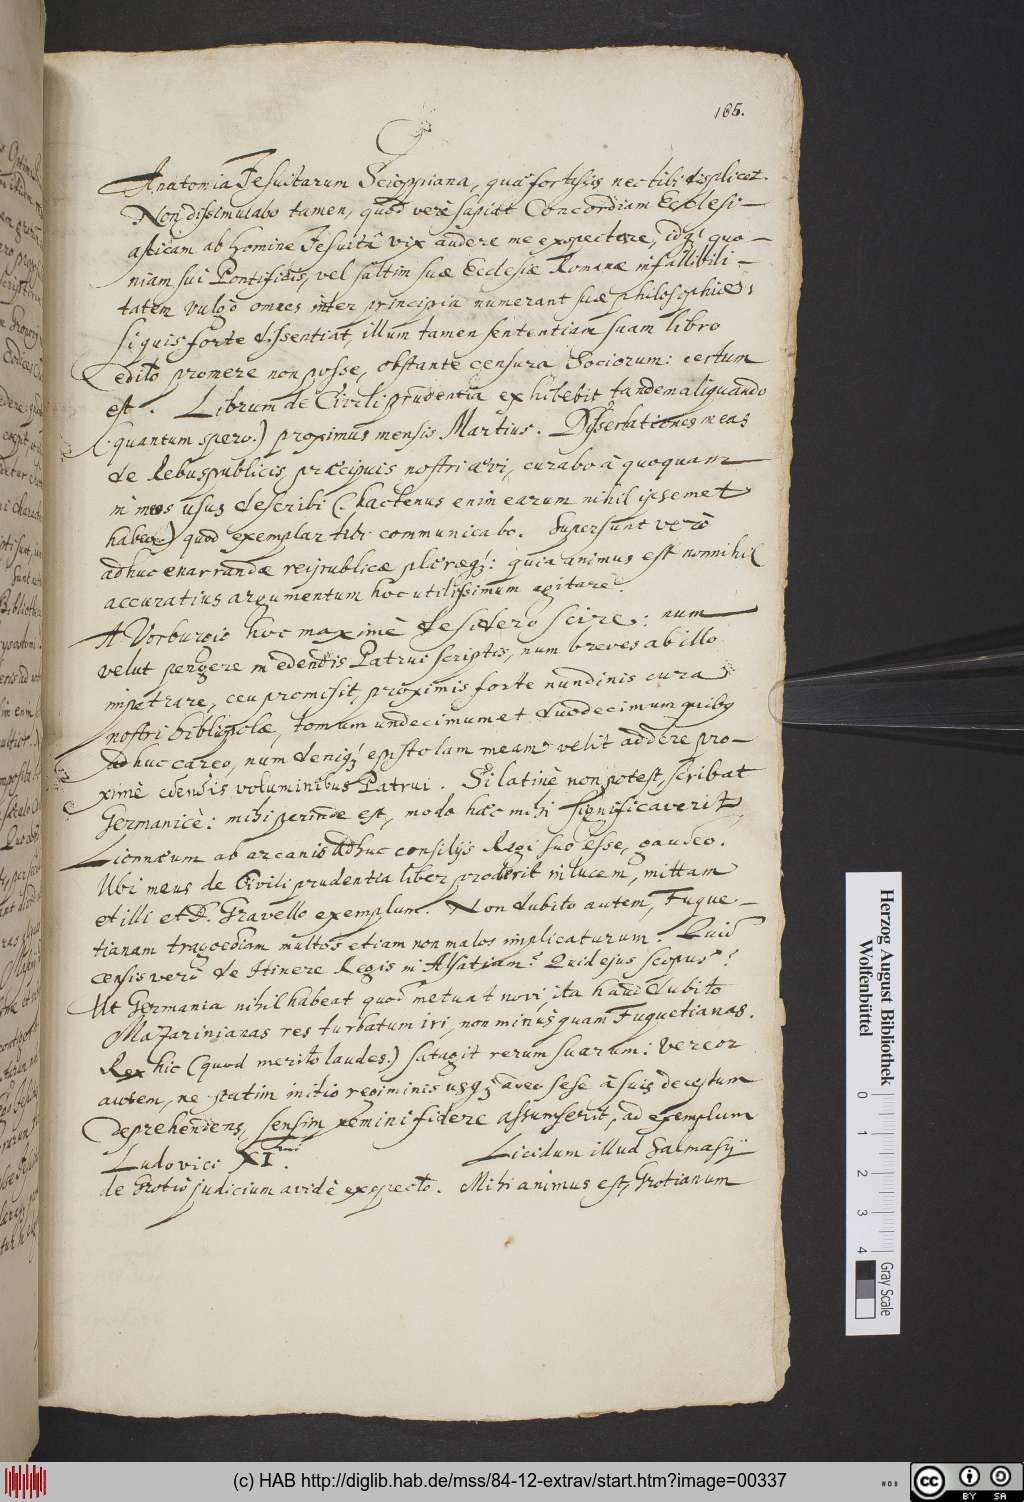 185.
Anatomia Jesuitarum Scioppiana, quà fortassis nec tibi displicet.
Non dissimulabo tamen, quòd verè sapiat Concordiam Ecclesi-
asticam ab homine Jesuitâ vix audere me exspectare, idq; quo-
niam sui Pontificis, vel saltim suæ Ecclesiæ Romanæ infallibili-
tatem vulgò omnes inter principia numerant suæ philosophiæ;
si quis forte dissentiat, illum tamen sententiam suam libro
edito promere non posse, obstante censura Sociorum: certum
est. Librum de Civili prudentia exhibebit tandem aliquando
(quantum spero.) proximus mensis Martius. Dissertationes meas
de Rebuspublicis præcipuis nostri ævi, curabo à quoquam
in meos usus describi (hactenus enim earum nihil ipsemet
habeo) quod exemplar tibi communicabo. Supersunt verò
adhuc enarrandæ reipublicæ pleræq;: quia animus est nonnihil
accuratius argumentum hoc utilissimum agitare.
A Vorburgio hoc maximè desidero scire: num
velut pergere in edendis Patrui scriptis, num breves ab illo
impetrare, ceu promisit, proximis forte nundinis cura
nostri bibliopolæ, tomum undecimum et duodecimum quibus
adhuc careo, num deniq; epistolam meam velit addere pro-
ximè edendis voluminibus Patrui. Si latinè non potest, scribat
Germanicè: mihi perinde est, modo hæc mihi significaverit.
Lionnæum ab arcanis adhuc consilijs Regi suo esse, gaudeo.
Ubi meus de Civili prudentia liber prodierit in lucem, mittam
et illi et D. Gravello exemplum. Non dubito autem, Fuque-
tianam tragoediam multos etiam non malos implicaturum. Quid
censes verò de Itinere Regis in Alsatiam? Quid ejus scopus?
Ut Germania nihil habeat quod metuat novi, ita haud dubito
Mazarinianas res turbatum iri, non minus quam Fuquetianas.
Rex hic (quod meritò laudes.) satagit rerum suarum: vereor
autem, ne statim initio regiminis usq; adeo sese à suis deceptum
deprehendens, sensim nemini fidere assumserit, ad exemplum
Ludovici XI.mi Licidum illud Salmasij
de Grotio judicium avidè exspecto. Mihi animus est, Grotianum
Herzog August Bibliothek
Wolfenbüttel
0 1 2 3 4
Gray Scale
(c) HAB http://diglib.hab.de/mss/84-12-extrav/start.htm?image=00337
cc BY SA